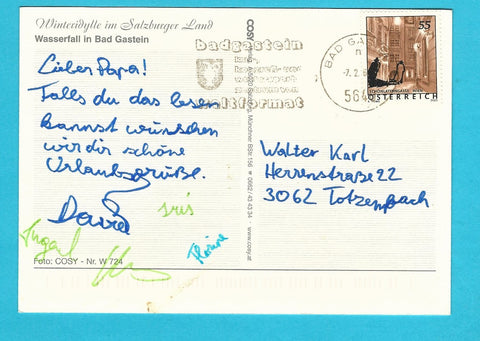 Winteridylle im Salzburger Land
Wasserfall in Bad Gastein
Lieber Papa!
Falls du das lesen
kannst wünschen
wir dir schöne
Urlaubsgrüße.
David
iris
Florine
Foto: COSY - Nr. W 724
COSY
www.cosy.at
badgastein
weltformat
BAD GA
55
ÖSTERREICH
Walter Karl
Herrenstraße 22
3062 Totzenbach